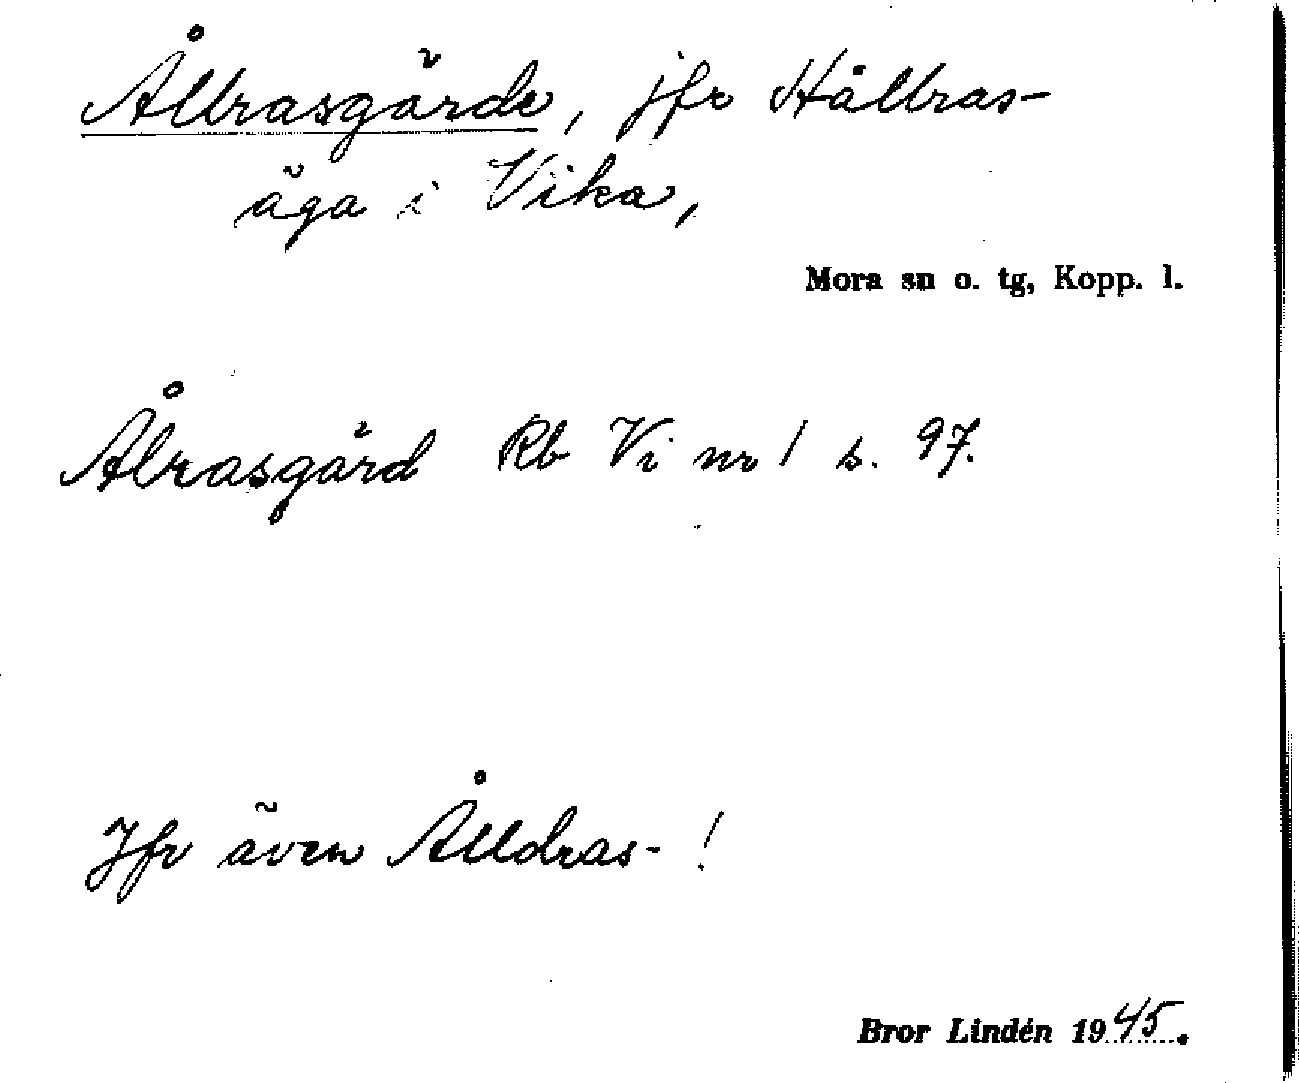 Ållrasgärde, jfr Hållras-
äga i Vika,
Mora sn o. tg, Kopp. l.
Ålrasgärd Rb Vi nr 1 s. 97.
Jfr även Ålldras- !
Bror Lindén 1945.